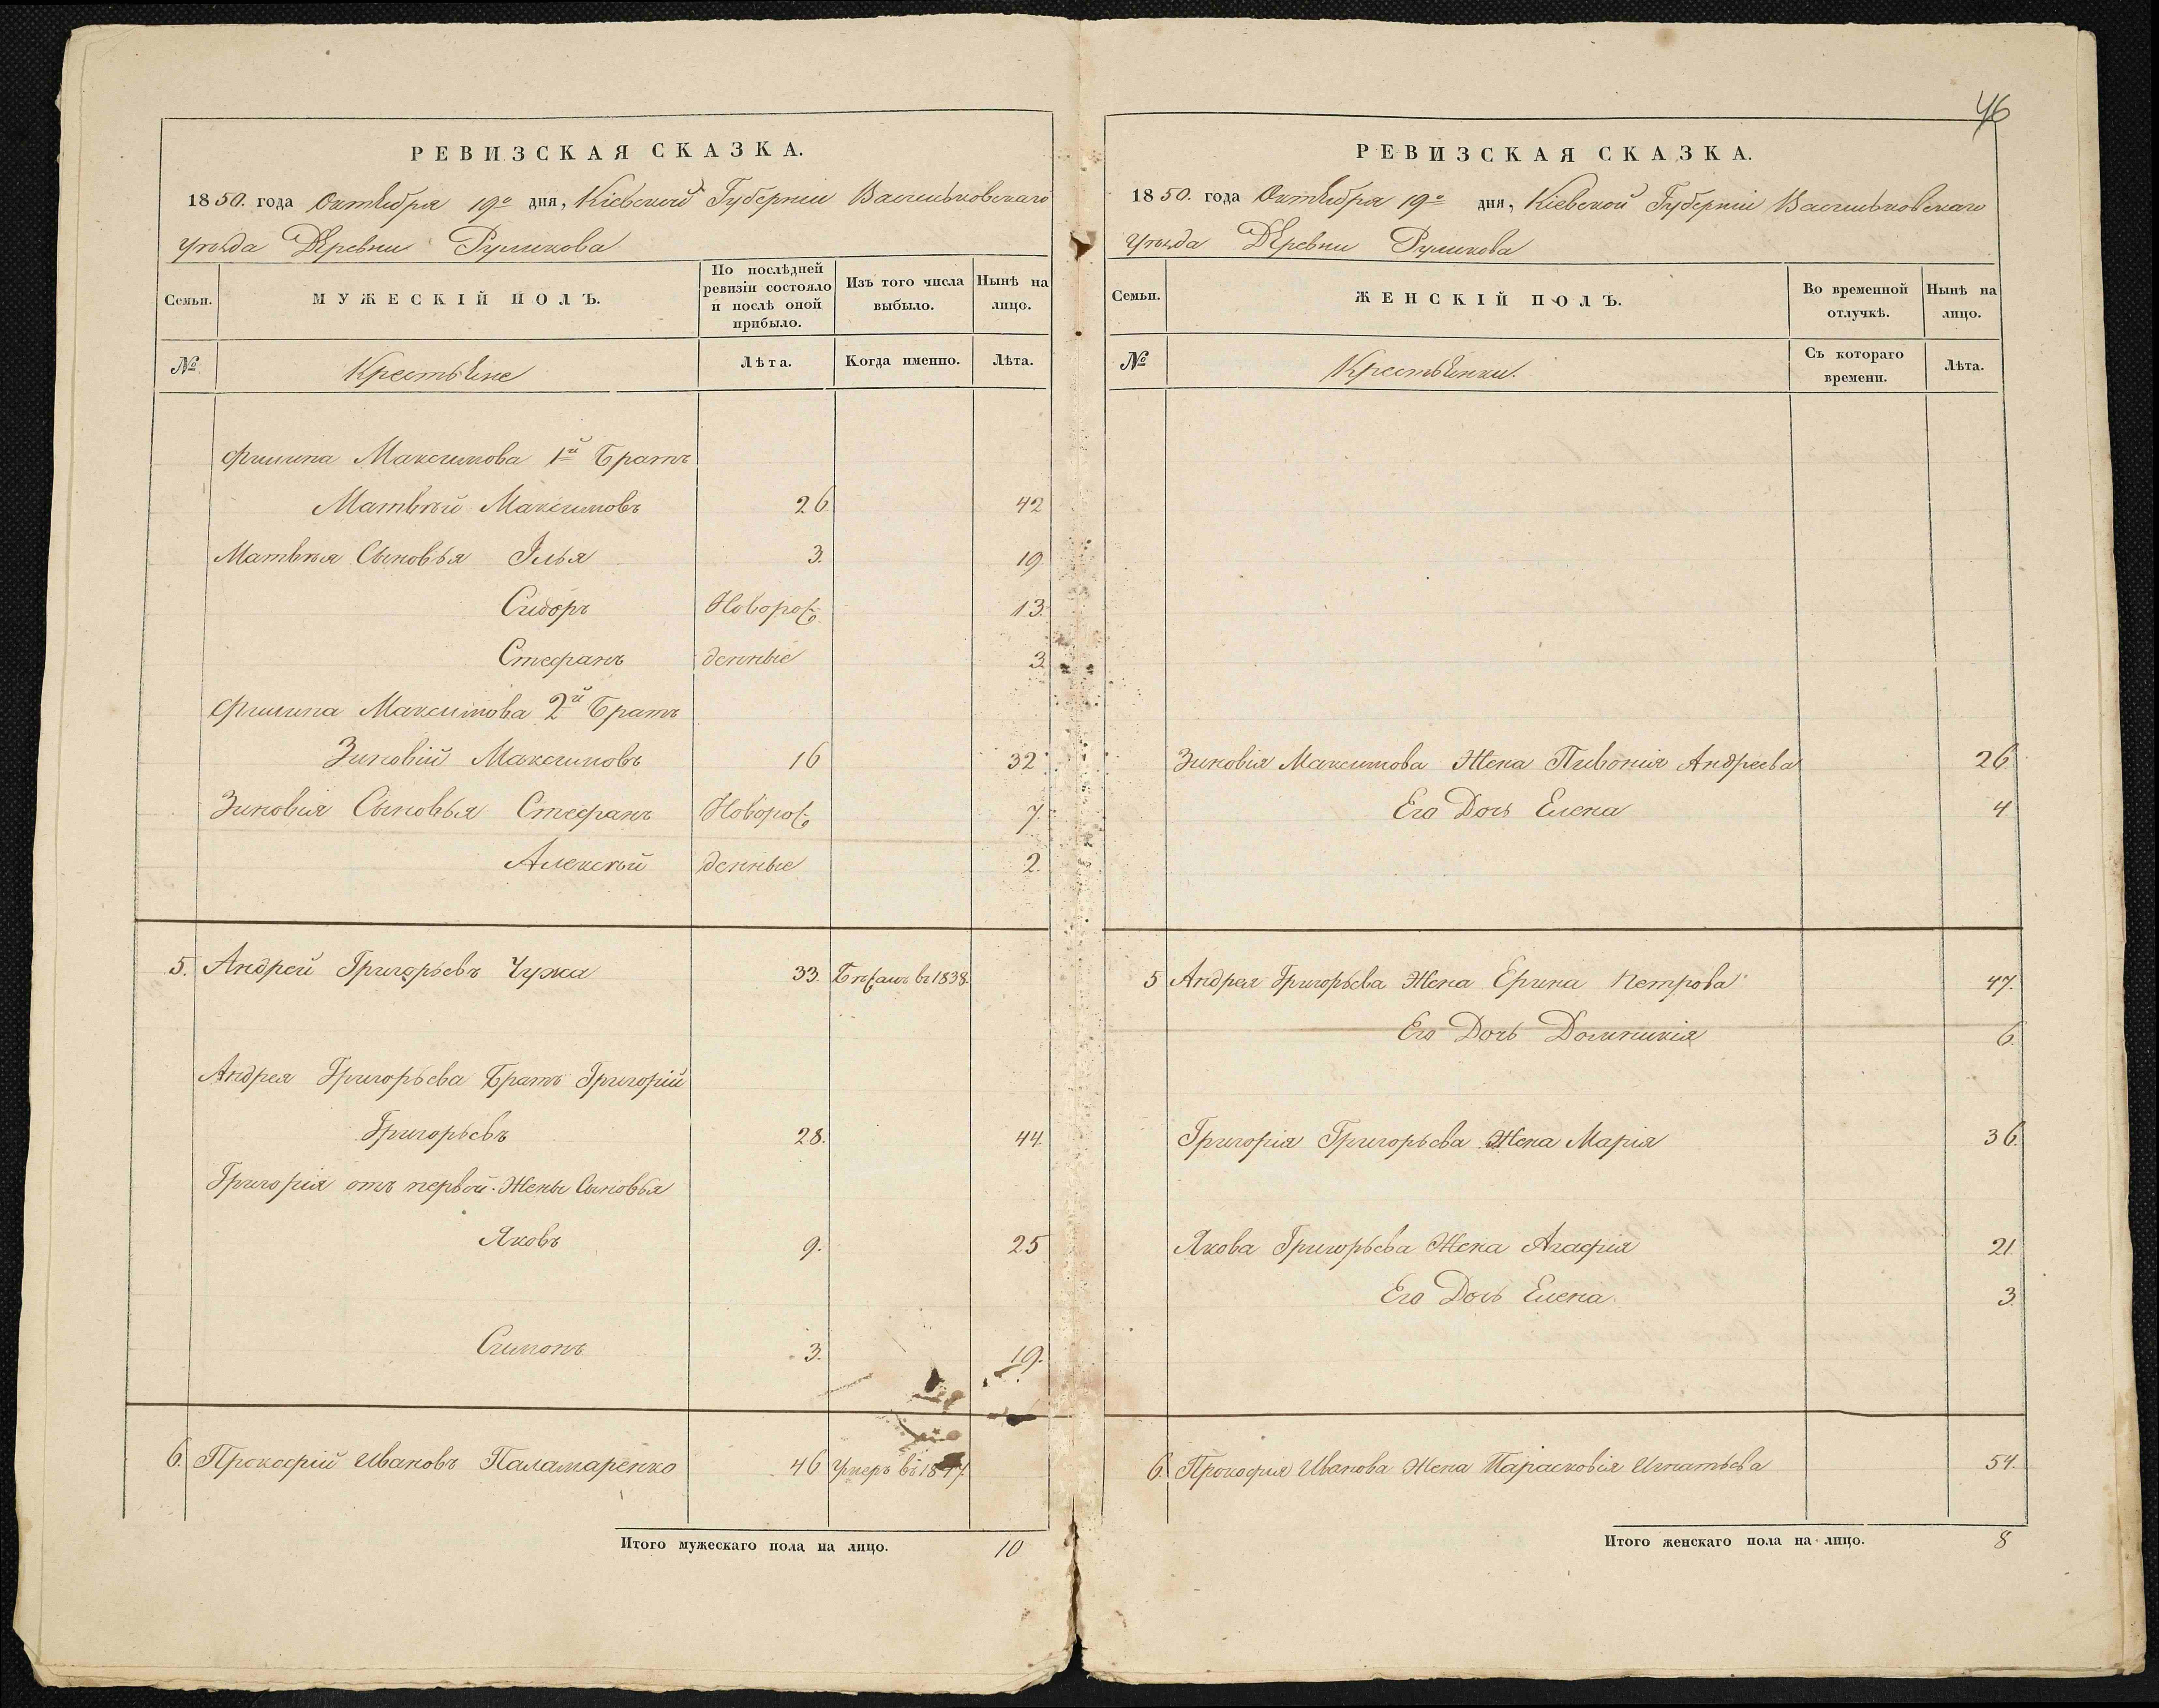 46
РЕВИЗСКАЯ СКАЗКА.
1850. года Октября 19го дня, Кіевской Губерніи Васильковскаго
уѣзда Деревни Руликова
Семьи.
МУЖЕСКІЙ ПОЛЪ.
По послѣдней ревизіи состояло и послѣ оной прибыло.
Изъ того числа выбыло.
Нынѣ на лицо.
№
Крестьяне
Лѣта.
Когда именно.
Лѣта.
Филипа Максимова 1й Братъ
Матвѣй Максимовъ 26 42
Матвѣя Сыновья Илья 3. 19
Сидоръ Новорож 13.
Стефанъ денные 3
Филипа Максимова 2й Братъ
Зиновій Максимовъ 16 32
Зиновія Сыновья Стефанъ Новорож 7.
Алексѣй денные 2.
5. Андрей Григорьевъ Чужа 33. Бѣжалъ въ 1838.
Андрея Григорьева Братъ Григорій
Григорьевъ 28. 44.
Григорія отъ первой Жены Сыновья
Яковъ 9. 25
Симонъ 3. 19.
6. Прокофій Ивановъ Паламаренко 46 Умеръ въ
Итого мужескаго пола на лицо. 10
РЕВИЗСКАЯ СКАЗКА.
1850. года Октября 19го дня, Кіевской Губерніи Васильковскаго
уѣзда Деревни Руликова
Семьи.
ЖЕНСКІЙ ПОЛЪ.
Во временной отлучкѣ.
Нынѣ на лицо.
№
Крестьянки.
Съ котораго времени.
Лѣта.
Зиновія Максимова Жена Пивонія Андреева 26
Его Дочь Елена 4.
5 Андрея Григорьева Жена Ерина Петрова 47.
Его Дочь Домникія 6.
Григорія Григорьева Жена Марія 36.
Якова Григорьева Жена Агафія 21.
Его Дочь Елена 3
6. Прокофія Иванова Жена Парасковія Игнатьева 54.
Итого женскаго пола на лицо. 8